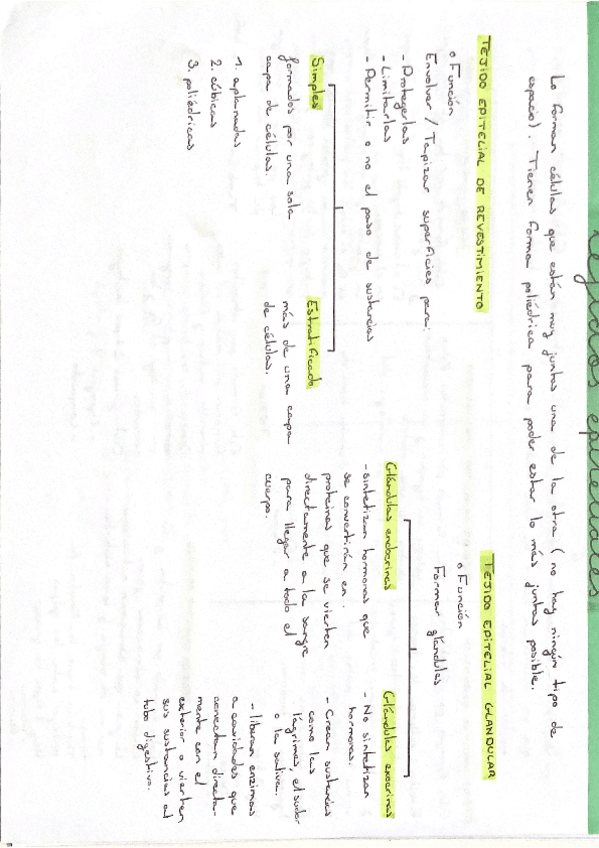 Tejidos epiteliales
Lo forman células que están muy juntas una de la otra (no hay ningún tipo de
espacio). Tienen forma poliédrica para poder estar lo más juntas posible.
TEJIDO EPITELIAL DE REVESTIMIENTO
o Función
Envolver / Tapizar superficies para:
- Protegerlas
- Limitarlas
- Permitir o no el paso de sustancias
Simples
formados por una sola
capa de células.
1. aplanadas
2. cúbicas
3. poliédricas
Estratificado
más de una capa
de células.
TEJIDO EPITELIAL GLANDULAR
o Función
Formar glándulas
Glándulas endocrinas
- sintetizan hormonas que
se convertirán en
proteinas que se vierten
directamente a la sangre
para llegar a todo el
cuerpo.
Glándulas exocrinas
- No sintetizan
hormonas.
- Crean sustancias
como las
lágrimas, el sudor
o la saliva.
- liberan enzimas
a cavidades que
conectan directa-
mente con el
exterior o vierten
sus sustancias al
tubo digestivo.